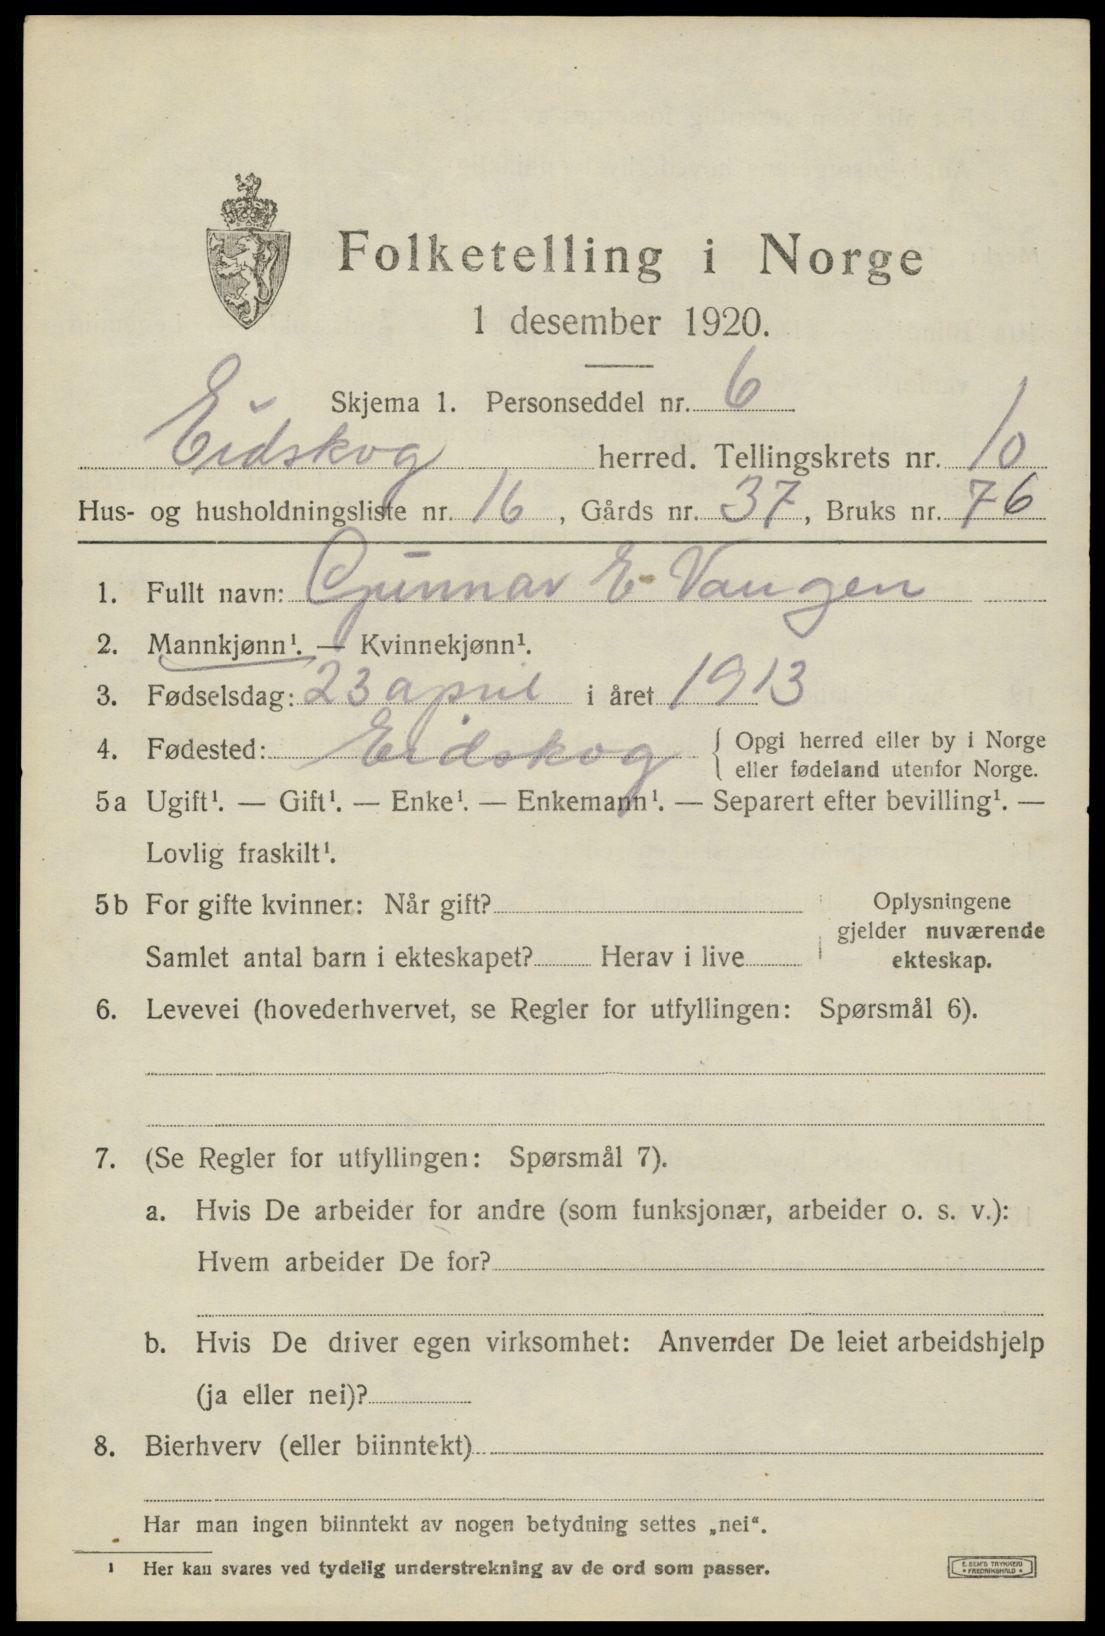 Folketelling i Norge
1 desember 1920.
Skjema 1. Personseddel nr. 6
Eidskog herred. Tellingskrets nr. 10
Hus- og husholdningsliste nr. 16, Gårds nr. 37, Bruks nr. 76
1. Fullt navn: Gunnar E. Vangen
2. Mannkjønn¹. — Kvinnekjønn¹.
3. Fødselsdag: 23 april i året 1913
4. Fødested: Eidskog { Opgi herred eller by i Norge
eller fødeland utenfor Norge.
5a Ugift¹. — Gift¹. — Enke¹. — Enkemann¹. — Separert efter bevilling¹. —
Lovlig fraskilt¹.
5b For gifte kvinner: Når gift?
Samlet antal barn i ekteskapet? Herav i live
Oplysningene
gjelder nuværende
ekteskap.
6. Levevei (hovederhvervet, se Regler for utfyllingen: Spørsmål 6).
7. (Se Regler for utfyllingen: Spørsmål 7).
a. Hvis De arbeider for andre (som funksjonær, arbeider o. s. v.):
Hvem arbeider De for?
b. Hvis De driver egen virksomhet: Anvender De leiet arbeidshjelp
(ja eller nei)?
8. Bierhverv (eller biinntekt)
Har man ingen biinntekt av nogen betydning settes „nei“.
¹ Her kan svares ved tydelig understrekning av de ord som passer.
E. SEM'S TRYKKERI
• FREDRIKSHALD •